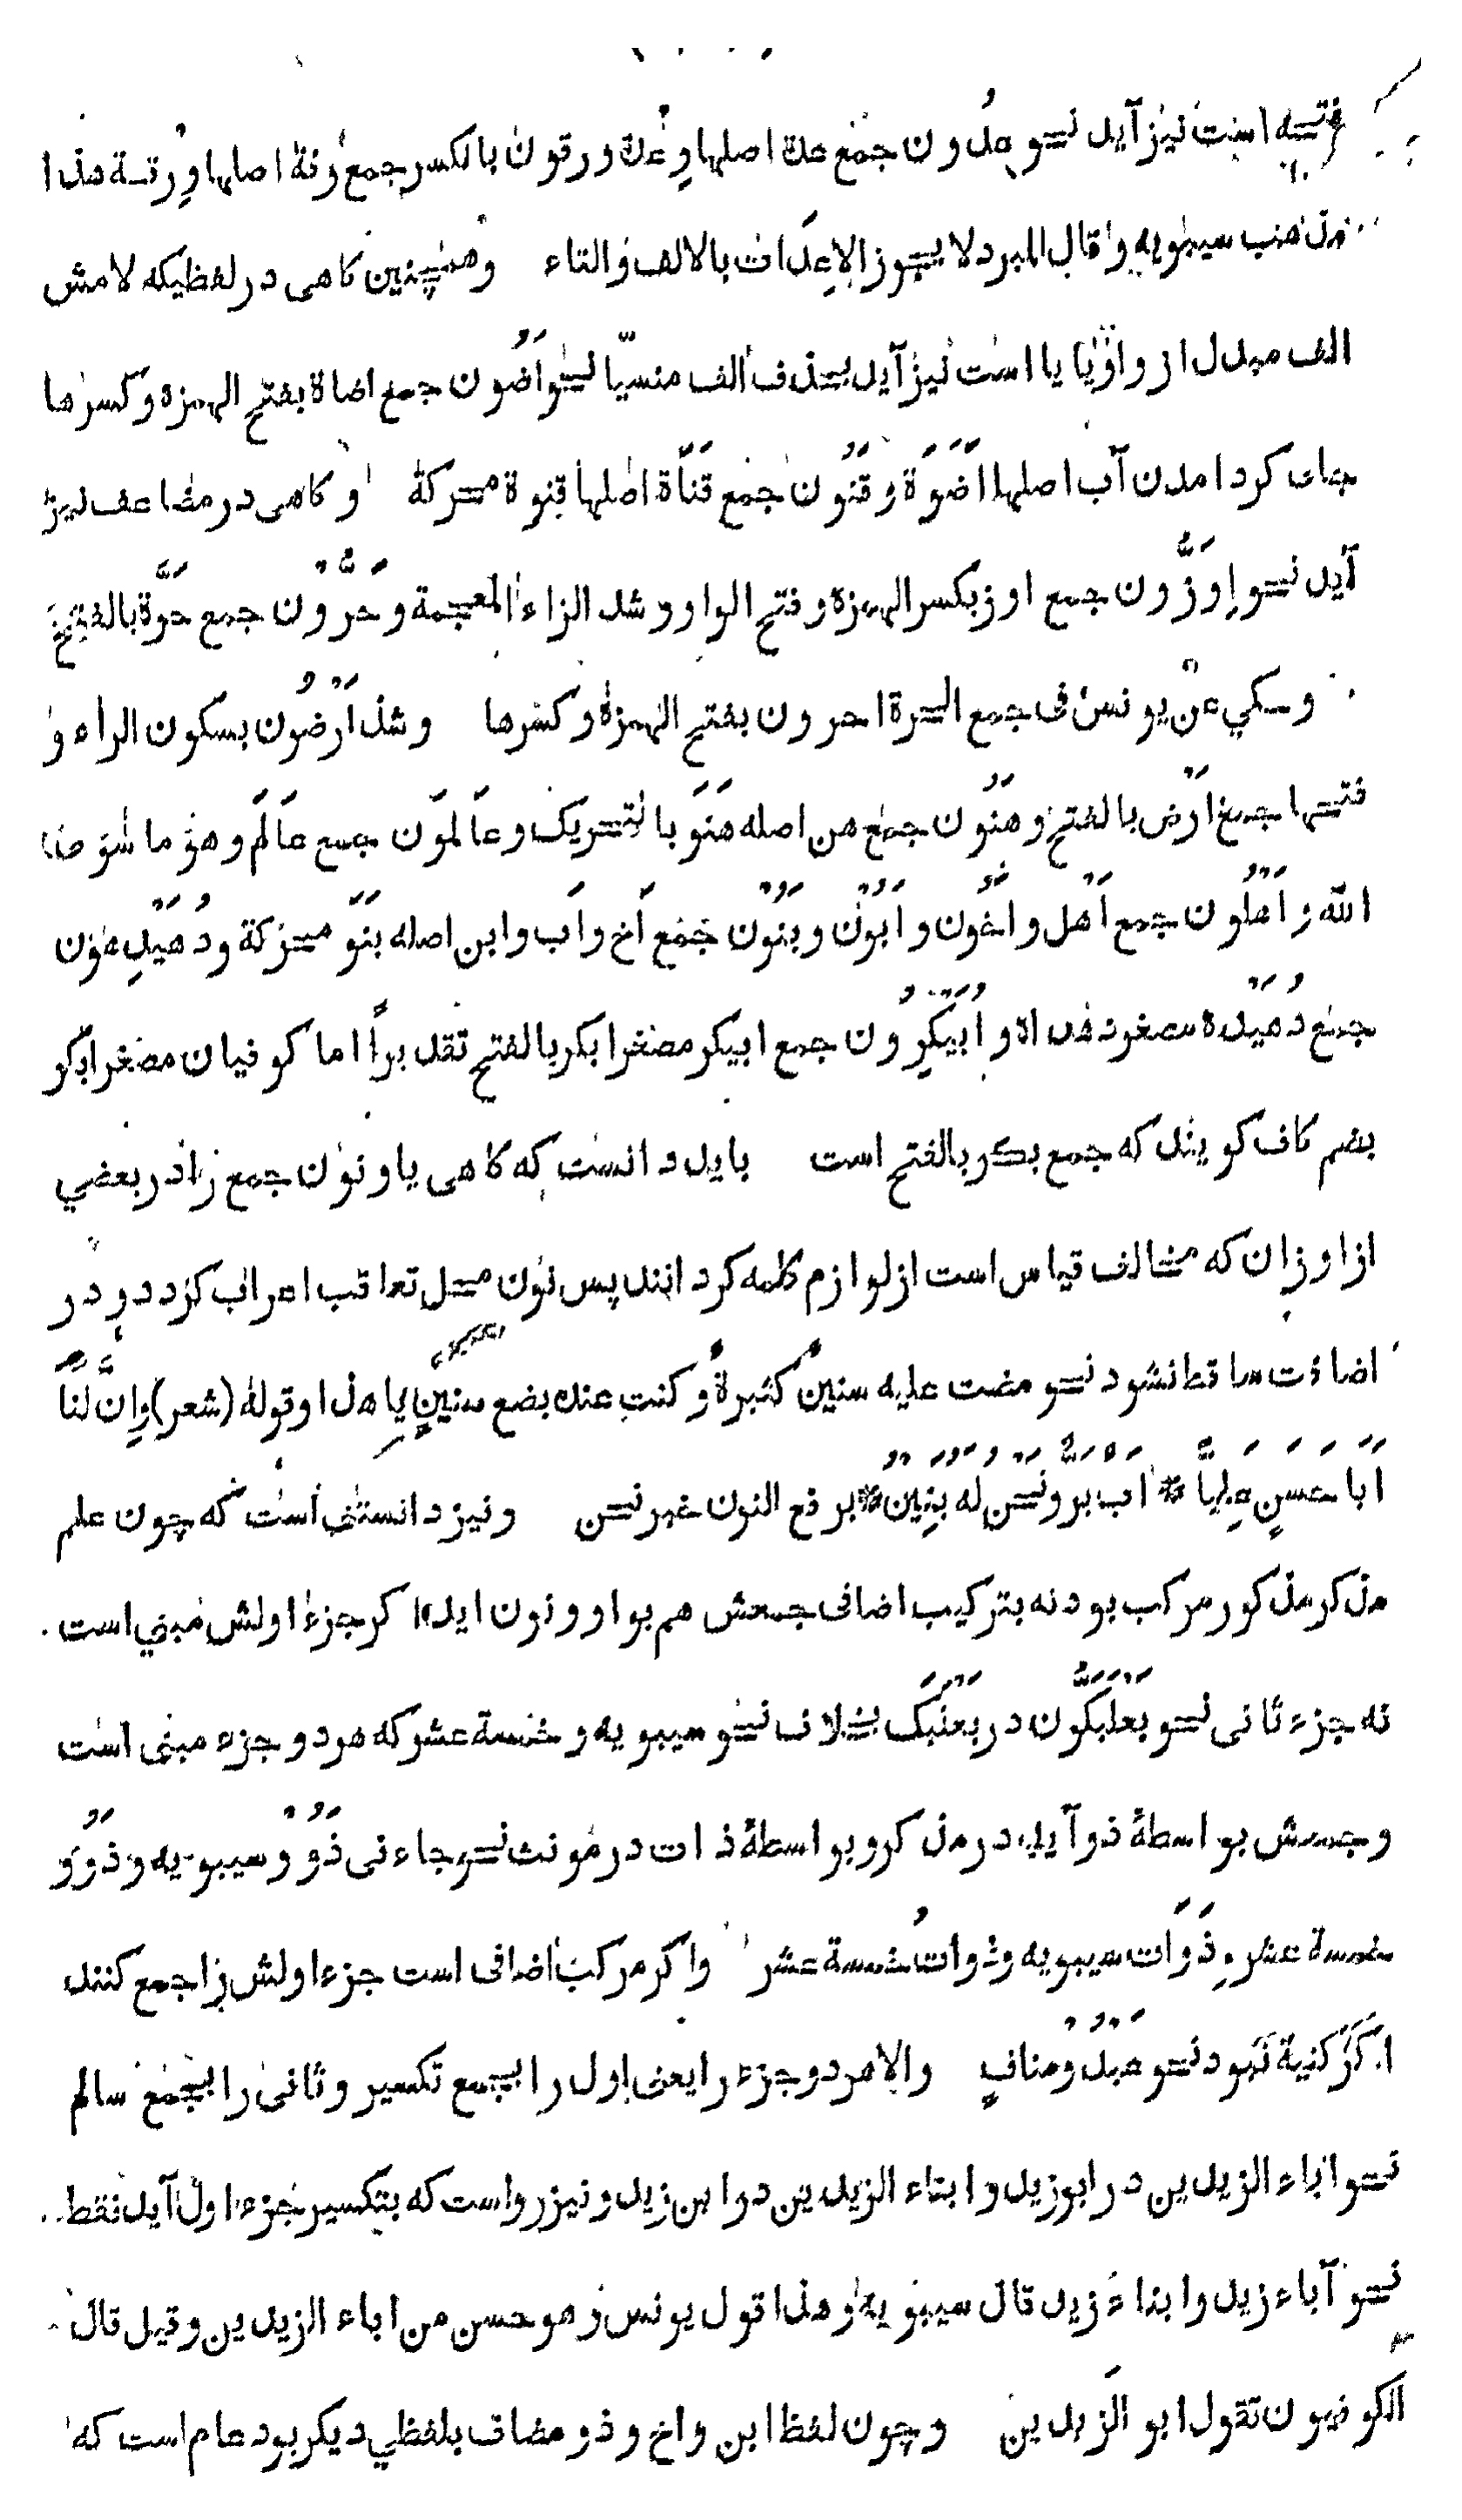 است نیز آید نحو عدون جمع عدة اصلها وعدة ورقون بالکسر جمع رقة اصلها ورقة هذا
مذهب سیبویه وقال المبرد لا یجوز الا عدات بالالف والتاء وهمچنین کاهی در لفظیکه لامش
الف مبدل از واو یا یا است نیز آید بحذف الف منسیّا نحو اَضُون جمع اضاة بفتح الهمزه وکسرها
جای کرد امدن آب اصلها اَضَوَة وقَنُون جمع قَنَاة اصلها قنوة محرکة و کاهی در مضاعف نیز
آید نحو إوَزُّون جمع اوز بکسر الهمزه وفتح الواو وشد الزاء المعجمة وحَرُّون جمع حَرَّة بالفتح
وحکي عن یونس فی جمع الحرة احرون بفتح الهمزة وکسرها وشذ اَرْضُون بسکون الراء و
فتحها جمع اَرْض بالفتح وهَنُون جمع هن اصله هَنَو بالتحریک وعَالَمون جمع عَالَم وهو ما سوی
الله واَهْلُون جمع اَهْل واخُون واَبُوْن وبَنُوْن جمع اَخ واَب وابن اصله بَنَو محرکة ودُهَیْدِهُون
جمع دُهَیْدِه مصغر دهداه واُبَیْکِرُون جمع ابیکر مصغر ابکر بالفتح تقدیراً اما کوفیان مصغر ابکر
بضم کاف کویند که جمع بکر بالفتح است باید دانست که کاهی یا و نون جمع را در بعضي
از اوزان که مخالف قیاس است از لوازم کلمه کردانند پس نون محل تعاقب اعراب کردد و در
اضافت ساقط نشود نحو مضت علیه سنین کثیرة وکنت عنده بضع سنینٍ یا هذا وقوله (شعر) وإنّ لنا
اَبَا حَسَنٍ عَلِیًّا * اَب بر ونحن له بنین * برفع النون خبر نحن ونیز دانستنی است که چون علم
مذکر مذکور مرکب بود نه بترکیب اضافی جمعش هم بواو و نون اید اکر جزء اولش مبنی است
نه جزء ثانی نحو بَعْلَبَکُّون در بَعْلَبَک بخلاف نحو سیبویه وخمسة عشر که هر دو جزء مبنی است
وجمعش بواسطهٔ ذو آید در مذکر وبواسطهٔ ذات در مونث نحو جاءنی ذَوُوْ سیبویه وذَوُو
خمسة عشر وذَوَات سیبویه وذوات خمسة عشر واکر مرکب اضافی است جزء اولش را جمع کنند
اکر کنیة نبود نحو عَبْدُو منافٍ والا هر دو جزء را یعنی اول را بجمع تکسیر وثانی را بجمع سالم
نحو اباء الزیدین در ابوزید وابناء الزیدین در ابن زید ونیز رواست که بتکسیر جزء اول آید فقط
نحو آباء زید وابناء زید قال سیبویه وهذا قول یونس وهو حسن من اباء الزیدین وقیل قال
الکوفیون تقول ابو الزیدین وچون لفظ ابن واخ وذو مضاف بلفظي دیکر بود عام است که